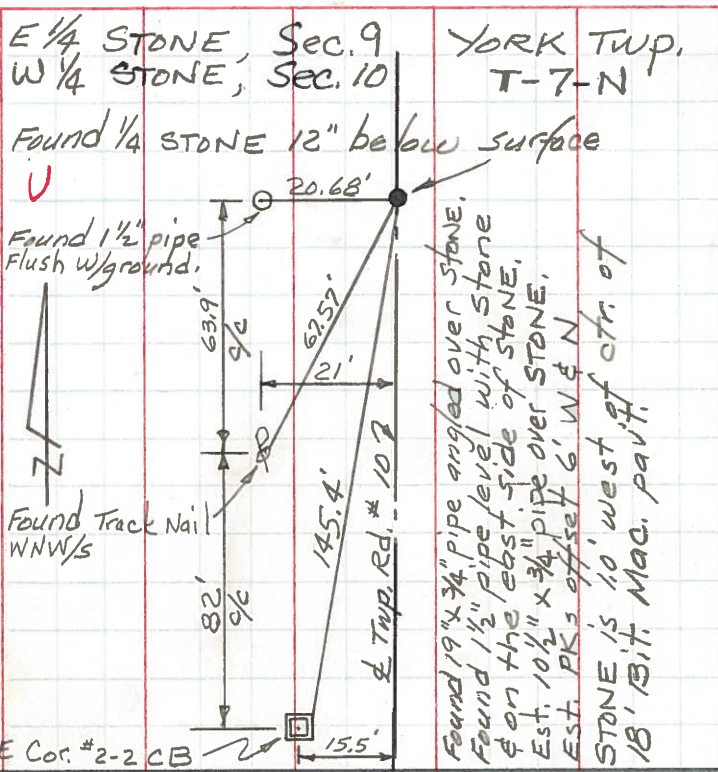 E 1/4 STONE, Sec. 9
W 1/4 STONE, Sec. 10
YORK TWP.
T-7-N
Found 1/4 STONE 12" below surface
U
20.68'
Found 1½" pipe
Flush w/ground.
63.9'
c/c
67.57'
21'
N
Found Track Nail
WNW/s
82'
c/c
145.4'
℄ Twp. Rd. # 107
E Cor. #2-2 CB
15.5'
Found 19" x 3/4" pipe angled over STONE.
Found 1½" pipe level with stone
& on the east side of STONE.
Est. 10½" x 3/4" pipe over STONE.
Est. PKs offset 6' W & N
STONE is 1.0' west of ctr. of
18' Bit. Mac. pav't.